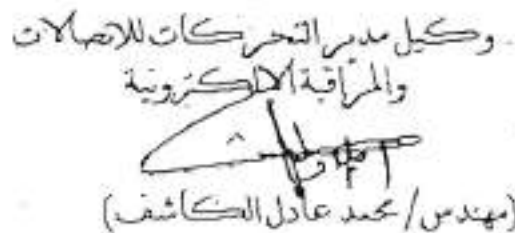 وكيل مدير التحركات للاتصالات
والمراقبة الالكترونية
(مهندس/ محمد عادل الكاشف)